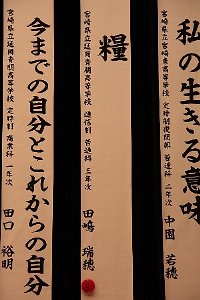 私の生きる意味
宮崎県立宮崎東高等学校 定時制夜間部 普通科 二年次
中園 若穂
糧
宮崎県立延岡青朋高等学校 通信制 普通科 三年次
田嶋 瑞穂
今までの自分とこれからの自分
宮崎県立延岡青朋高等学校 定時制 商業科 一年次
田口 裕明